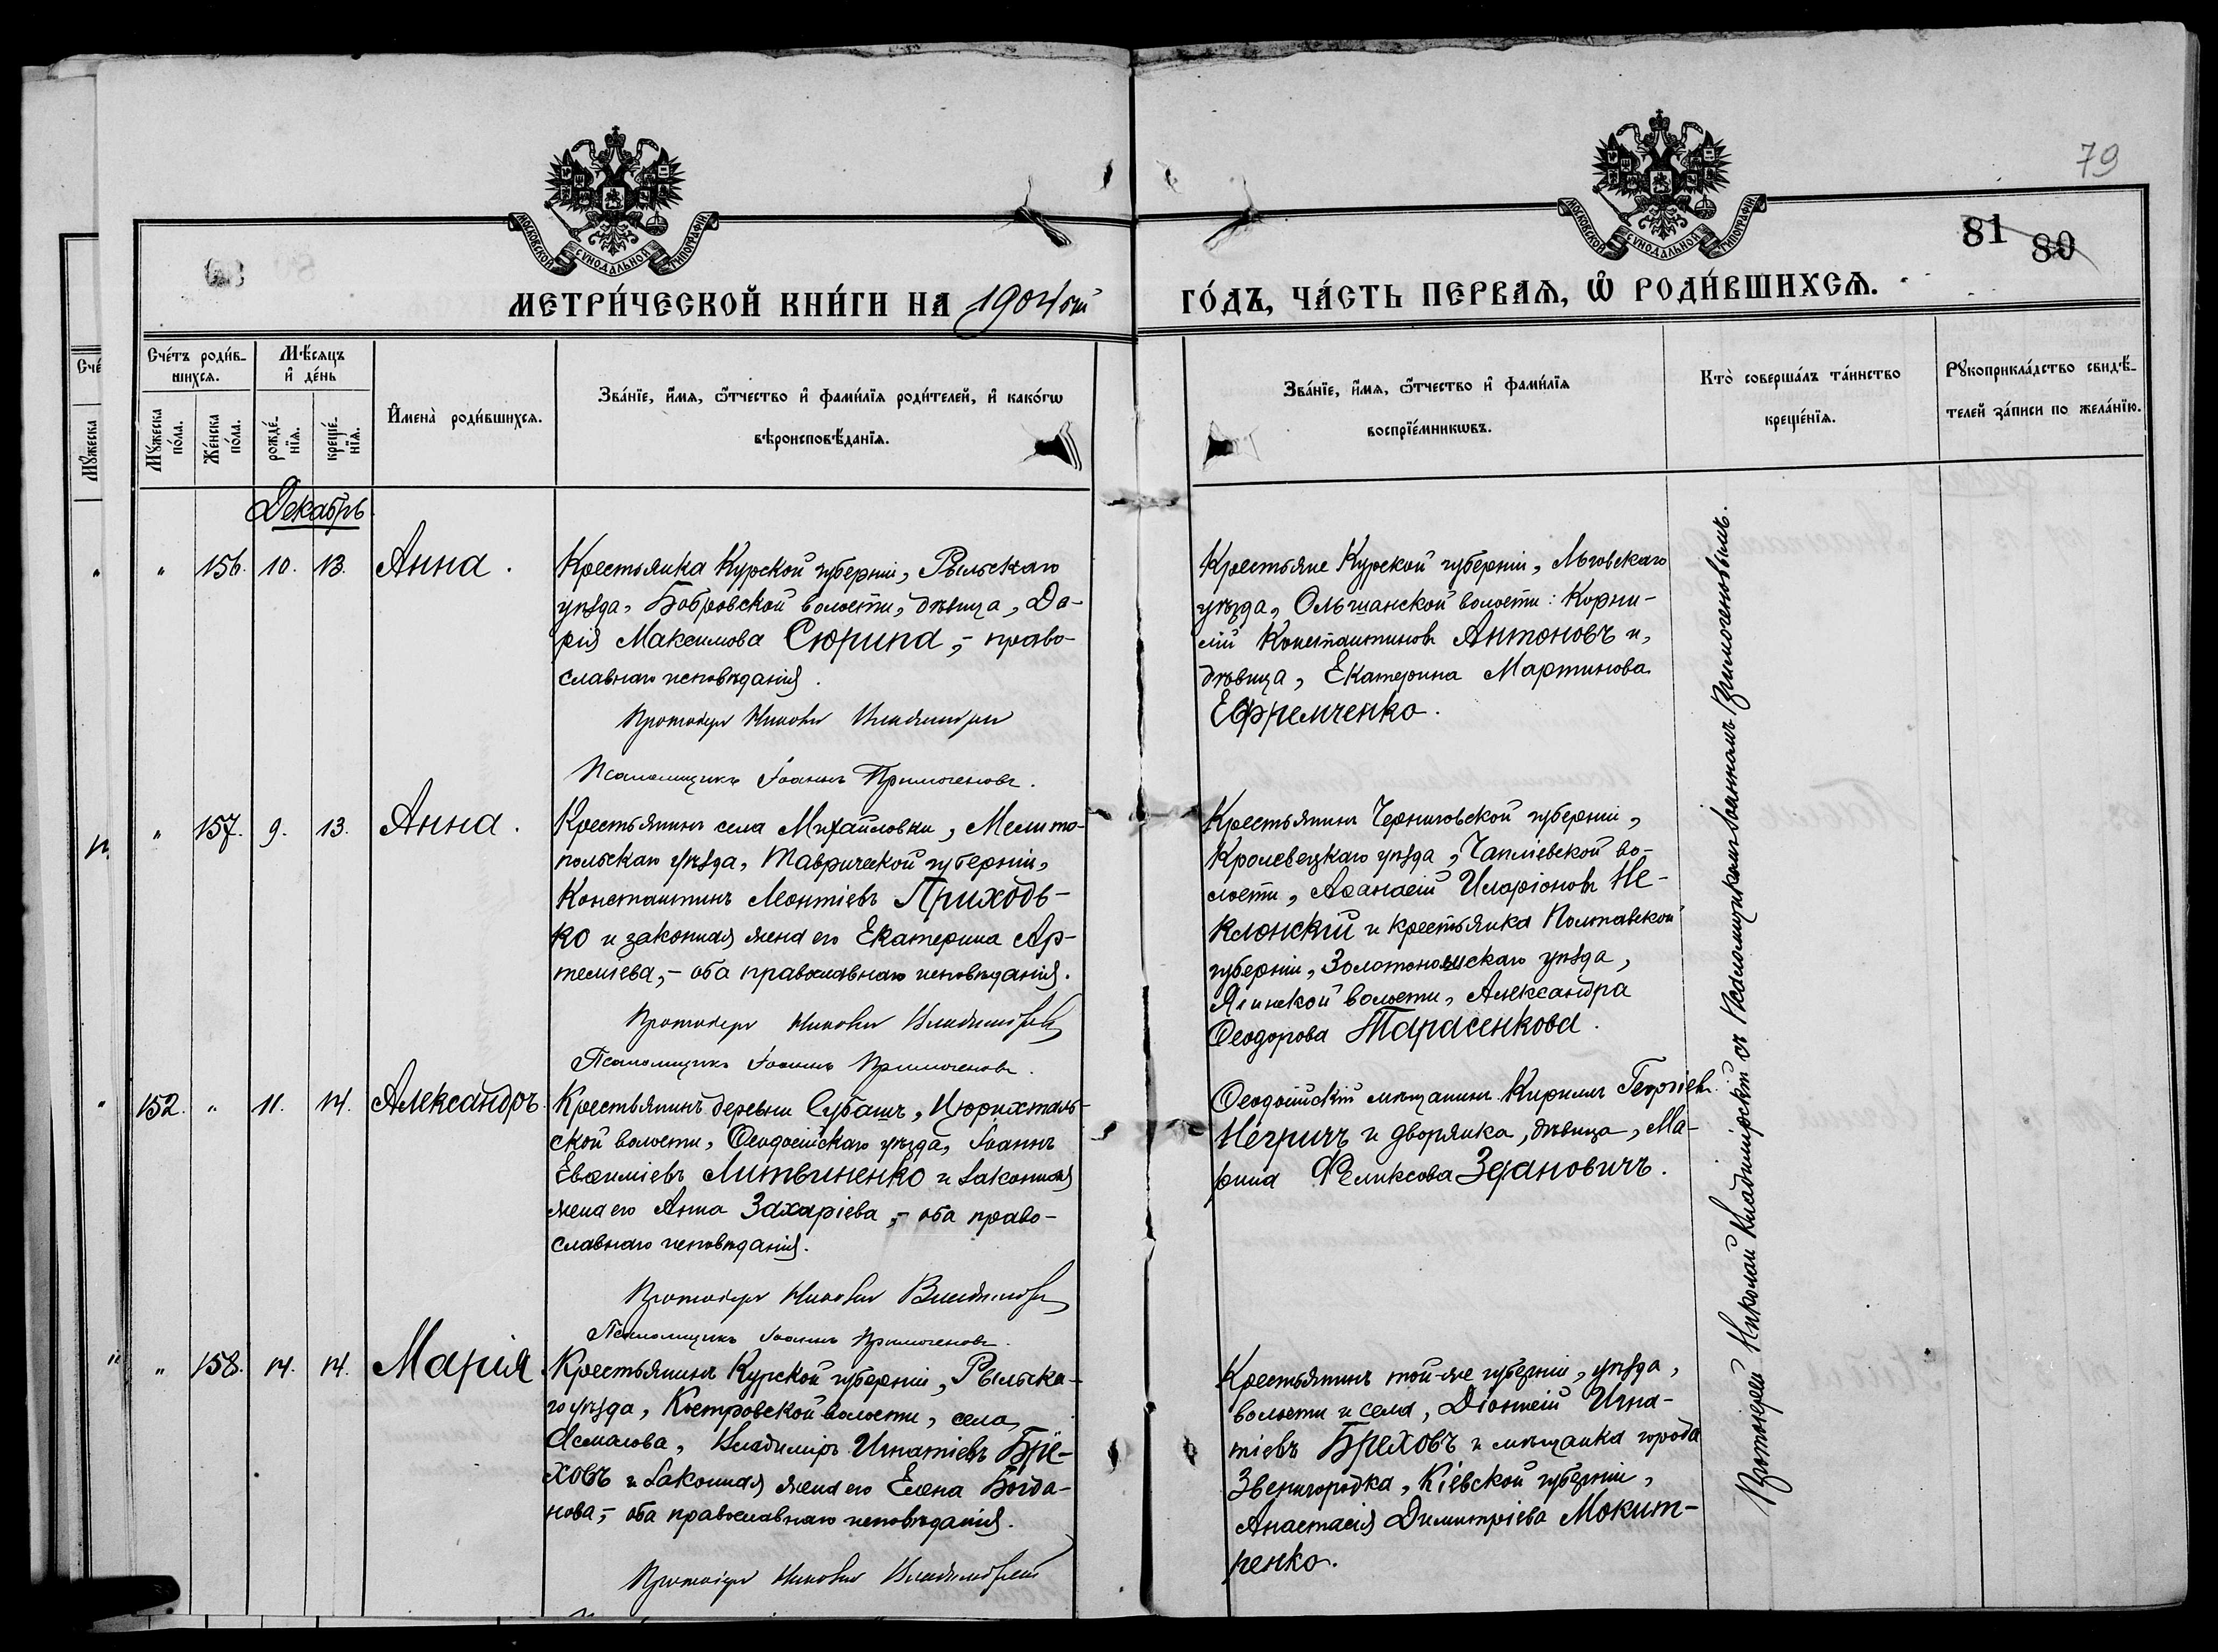 79
81 80
МОСКОВСКОЙ СѴНОДАЛЬНОЙ ТИПОГРАФІИ
МОСКОВСКОЙ СѴНОДАЛЬНОЙ ТИПОГРАФІИ
МЕТРИ́ЧЕСКОЙ КНИ́ГИ НА 1904 ый
ГО́ДЪ, ЧА́СТЬ ПЕРВАѦ, Ѡ҆ РОДИ́ВШИХСѦ.
Сче́тъ роди́в-
шихсѧ.
Мѣ́сѧцъ
и҆ де́нь
Мꙋ́жеска
по́ла.
Же́нска
по́ла.
рожде́-
нїѧ.
креще́-
нїѧ.
И҆мена̀ роди́вшихсѧ.
Зва́нїе, и҆́мѧ, ѻ҆́тчество и҆ фами́лїѧ роди́телей, и҆ како́гѡ
вѣроисповѣ́данїѧ.
Зва́нїе, и҆́мѧ, ѻ҆́тчество и҆ фами́лїѧ
воспрїе́мникѡвъ.
Кто̀ соверша́лъ та́инство
креще́нїѧ.
Рꙋкоприкла́дство свидѣ́-
телей за́писи по жела́нїю.
Сче́
Мꙋ́жеска
Декабрь
" 156. 10. 13. Анна.
Крестьянка Курской губерніи, Рыльскаго
уѣзда, Бобровской волости, дѣвица, Да-
рія Максимова Сюрина, - право-
славнаго исповѣданія.
Протоіерей Николай Владимірскій
Псаломщикъ Іоаннъ Примогеновъ.
Крестьяне Курской губерніи, Льговскаго
уѣзда, Ольшанской волости: Корни-
лій Константиновъ Антоновъ и,
дѣвица, Екатерина Мартинова
Ефремченко.
" 157. 9. 13. Анна.
Крестьянинъ села Михайловки, Мелито-
польскаго уѣзда, Таврической губерніи,
Константинъ Леонтіевъ Приходь-
ко и законная жена его Екатерина Ар-
темиева, - оба православнаго исповѣданія.
Протоіерей Николай Владимірскій
Псаломщикъ Іоаннъ Примогеновъ.
Крестьянинъ Черниговской губерніи,
Кролевецкаго уѣзда, Чапліевской во-
лости, Аѳанасій Иларіоновъ Не-
клонскій и крестьянка Полтавской
губерніи, Золотоношскаго уѣзда,
волости, Александра
Ѳеодорова Тарасенкова.
152. " 11. 14. Александръ.
Крестьянинъ деревни Субашъ, Цюрихталь-
ской волости, Ѳеодосійскаго уѣзда, Іоаннъ
Евѳиміевъ Литвиненко и законная
жена его Анна Захаріева, - оба право-
славнаго исповѣданія.
Протоіерей Николай Владимірскій
Псаломщикъ Іоаннъ Примогеновъ.
Ѳеодосійскій мѣщанинъ Кириллъ Георгіевъ
Негричъ и дворянка, дѣвица, Ма-
рина Феликсова Здановичъ.
" 158. 14. 14. Марія.
Крестьянинъ Курской губерніи, Рыльска-
го уѣзда, Костровской волости, села
Асмалова, Владиміръ Игнатіевъ Бре-
ховъ и законная жена его Елена Богда-
нова, - оба православнаго исповѣданія.
Протоіерей Николай Владимірскій
Крестьянинъ той-же губерніи, уѣзда,
волости и села, Діонисій Игна-
тіевъ Бреховъ и мѣщанка города
Звенигородка, Кіевской губерніи,
Анастасія Димитріева Мокит-
ренко.
Протоіерей Николай Владимірскій съ Псаломщикомъ Іоанномъ Примогеновымъ.